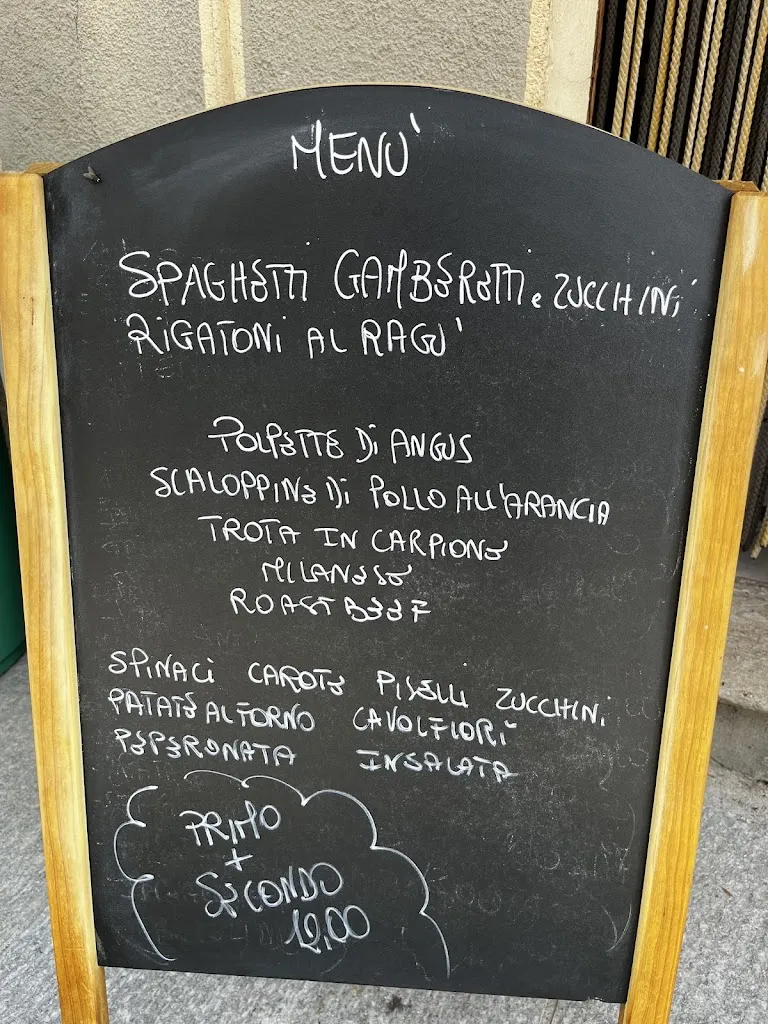 MENU'
SPAGHETTI GAMBERETTI e ZUCCHINI
RIGATONI AL RAGU'
POLPETTE DI ANGUS
SCALOPPINE DI POLLO ALL'ARANCIA
TROTA IN CARPIONE
MILANESE
ROAST BEEF
SPINACI CAROTE PISELLI ZUCCHINI
PATATE AL FORNO CAVOLFIORI
PEPERONATA INSALATA
PRIMO
+
SECONDO